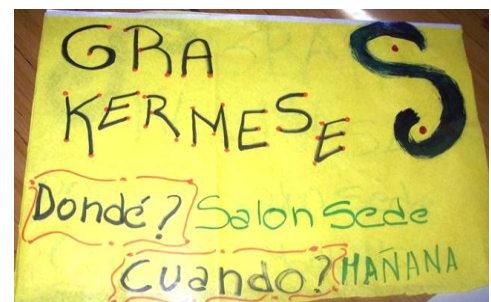 GRA S
KERMESE
Dondé? Salon Sede
Cuando? MAÑANA